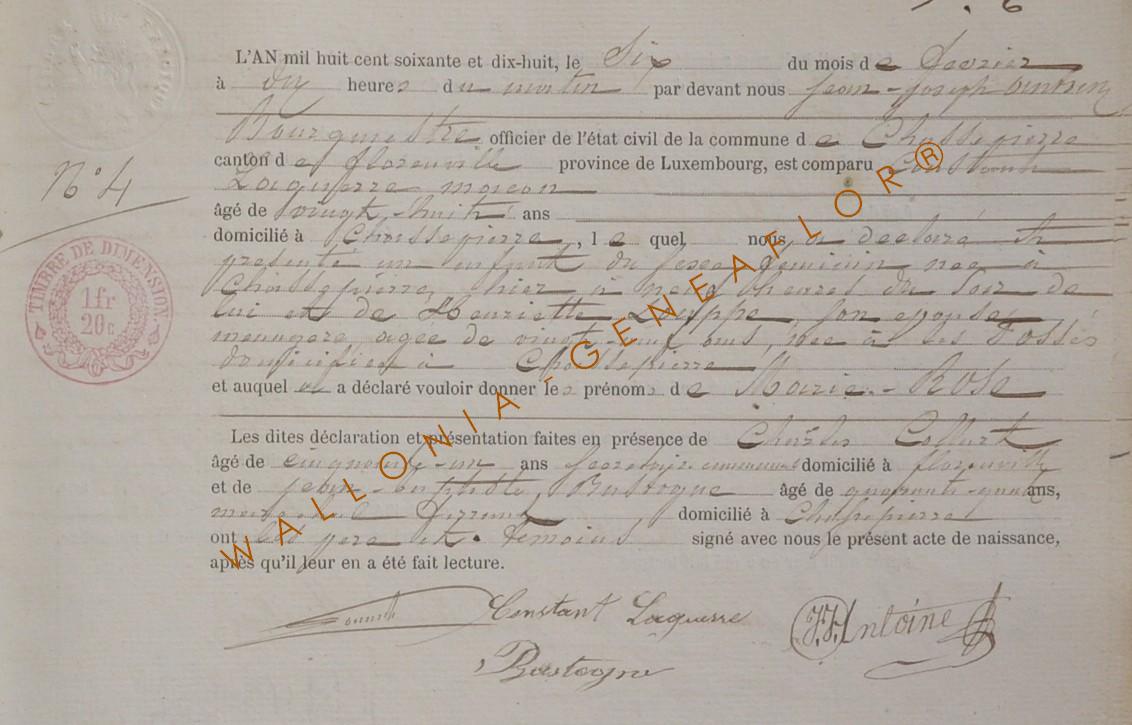 L'AN mil huit cent soixante et dix-huit, le Six du mois de Fevrier
à dix heures du matin par devant nous Jean-Joseph Antoine
Bourgmestre officier de l'état civil de la commune de Chassepierre
N° 4
canton de Florenville province de Luxembourg, est comparu Constant
Laguerre maçon
âgé de vingt-huit ans
domicilié à Chassepierre, lequel nous a déclaré et
présenté un enfant du sexe féminin née à
Chassepierre, hier à neuf heures du soir de
lui et de Henriette son epouse
menagère agée de vingt-neuf ans, née à Les Fossés
domiciliée à Chassepierre
et auquel il a déclaré vouloir donner les prénoms de Marie-Rose
Les dites déclaration et présentation faites en présence de Charles
âgé de cinquante-un ans Secretaire communal domicilié à Florenville
et de Jean-Baptiste Bastogne âgé de quarante-quatre ans,
marechal ferrant domicilié à Chassepierre
ont les père et témoins signé avec nous le présent acte de naissance,
après qu'il leur en a été fait lecture.
TIMBRE DE DIMENSION
1fr
20c
Constant Laguerre
J.J. Antoine
Bastogne
WALLONIA-GENEAFLOR®